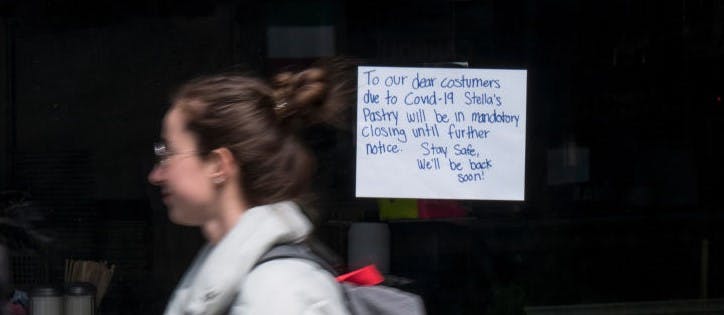 To our dear costumers
due to Covid-19 Stella's
Pastry will be in mandatory
closing until further
notice. Stay Safe,
We'll be back
soon!